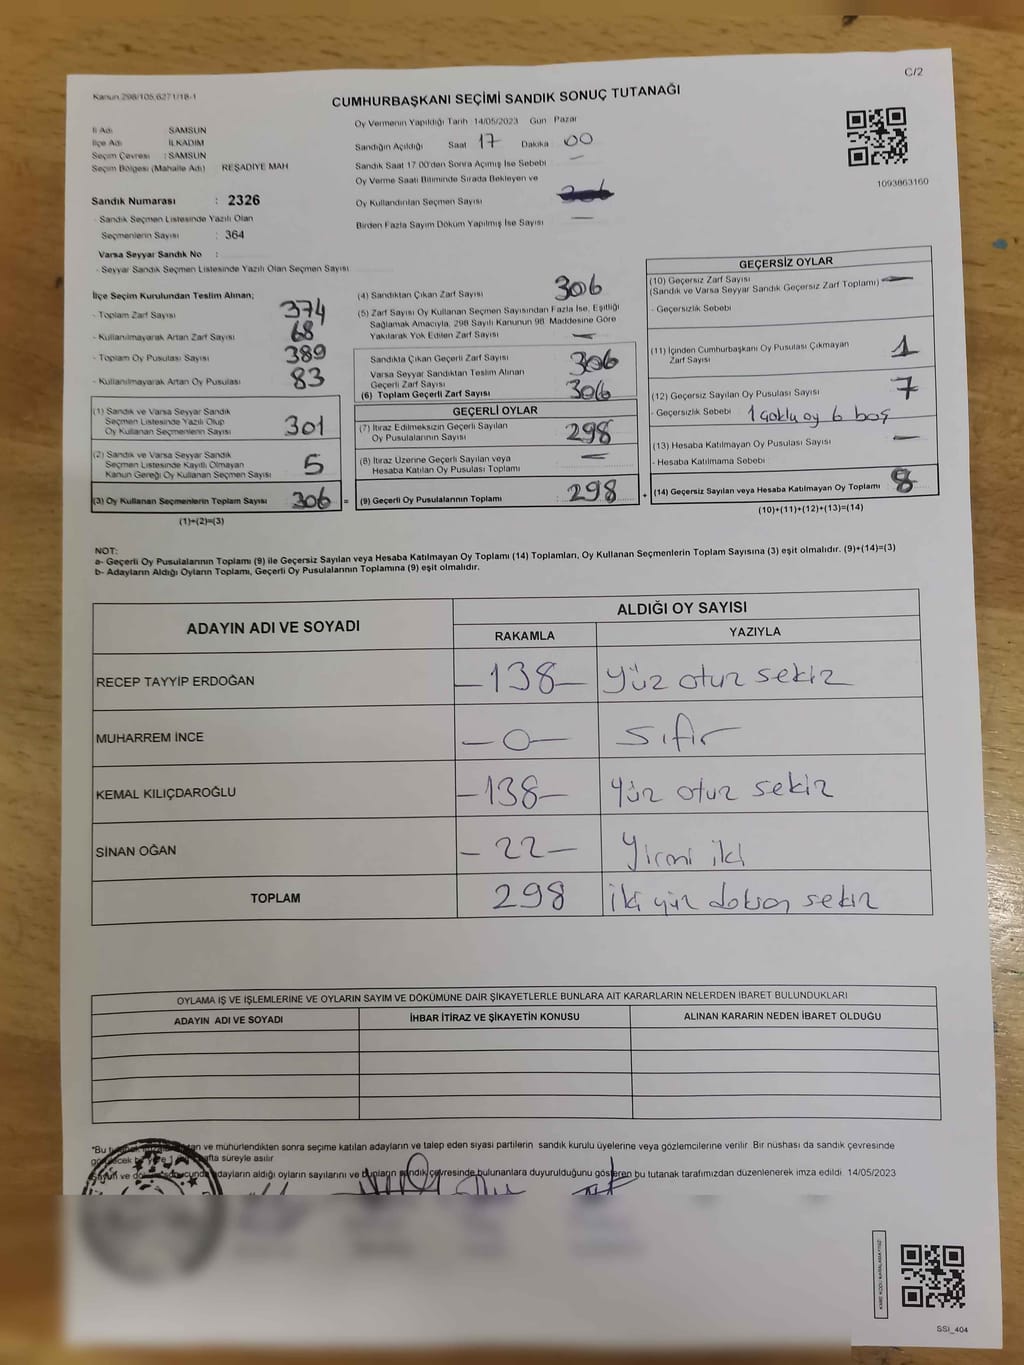 C/2
Kanun 298/105,6271/18-1
CUMHURBAŞKANI SEÇİMİ SANDIK SONUÇ TUTANAĞI
İl Adı SAMSUN
İlçe Adı İLKADIM
Seçim Çevresi : SAMSUN
Seçim Bölgesi (Mahalle Adı) REŞADİYE MAH
Oy Vermenin Yapıldığı Tarih 14/05/2023 Gün Pazar
Sandığın Açıldığı Saat 17 Dakika 00
Sandık Saat 17.00'den Sonra Açımış İse Sebebi —
Oy Verme Saati Bitiminde Sırada Bekleyen ve
Oy Kullandırılan Seçmen Sayısı
Birden Fazla Sayım Döküm Yapılmış İse Sayısı —
1093863160
Sandık Numarası : 2326
- Sandık Seçmen Listesinde Yazılı Olan
Seçmenlerin Sayısı : 364
Varsa Seyyar Sandık No :
- Seyyar Sandık Seçmen Listesinde Yazılı Olan Seçmen Sayısı
İlçe Seçim Kurulundan Teslim Alınan;
- Toplam Zarf Sayısı 374
- Kullanılmayarak Artan Zarf Sayısı 68
- Toplam Oy Pusulası Sayısı 389
- Kullanılmayarak Artan Oy Pusulası 83
(1) Sandık ve Varsa Seyyar Sandık
Seçmen Listesinde Yazılı Olup
Oy Kullanan Seçmenlerin Sayısı 301
(2) Sandık ve Varsa Seyyar Sandık
Seçmen Listesinde Kayıtlı Olmayan
Kanun Gereği Oy Kullanan Seçmen Sayısı 5
(3) Oy Kullanan Seçmenlerin Toplam Sayısı 306 =
(1)+(2)=(3)
(4) Sandıktan Çıkan Zarf Sayısı 306
(5) Zarf Sayısı Oy Kullanan Seçmen Sayısından Fazla İse, Eşitliği
Sağlamak Amacıyla, 298 Sayılı Kanunun 98. Maddesine Göre
Yakılarak Yok Edilen Zarf Sayısı —
Sandıkta Çıkan Geçerli Zarf Sayısı 306
Varsa Seyyar Sandıktan Teslim Alınan
Geçerli Zarf Sayısı
(6) Toplam Geçerli Zarf Sayısı 306
GEÇERLİ OYLAR
(7) İtiraz Edilmeksizin Geçerli Sayılan
Oy Pusulalarının Sayısı 298
(8) İtiraz Üzerine Geçerli Sayılan veya
Hesaba Katılan Oy Pusulası Toplamı —
(9) Geçerli Oy Pusulalarının Toplamı : 298 +
GEÇERSİZ OYLAR
(10) Geçersiz Zarf Sayısı
(Sandık ve Varsa Seyyar Sandık Geçersiz Zarf Toplamı) —
- Geçersizlik Sebebi
(11) İçinden Cumhurbaşkanı Oy Pusulası Çıkmayan
Zarf Sayısı 1
(12) Geçersiz Sayılan Oy Pusulası Sayısı 7
- Geçersizlik Sebebi 1 çoklu oy 6 boş
(13) Hesaba Katılmayan Oy Pusulası Sayısı —
- Hesaba Katılmama Sebebi
(14) Geçersiz Sayılan veya Hesaba Katılmayan Oy Toplamı 8
(10)+(11)+(12)+(13)=(14)
NOT:
a- Geçerli Oy Pusulalarının Toplamı (9) ile Geçersiz Sayılan veya Hesaba Katılmayan Oy Toplamı (14) Toplamları, Oy Kullanan Seçmenlerin Toplam Sayısına (3) eşit olmalıdır. (9)+(14)=(3)
b- Adayların Aldığı Oyların Toplamı, Geçerli Oy Pusulalarının Toplamına (9) eşit olmalıdır.
ADAYIN ADI VE SOYADI
ALDIĞI OY SAYISI
RAKAMLA YAZIYLA
RECEP TAYYİP ERDOĞAN —138— yüz otuz sekiz
MUHARREM İNCE —0— sıfır
KEMAL KILIÇDAROĞLU —138— yüz otuz sekiz
SİNAN OĞAN —22— yirmi iki
TOPLAM 298 iki yüz doksan sekiz
OYLAMA İŞ VE İŞLEMLERİNE VE OYLARIN SAYIM VE DÖKÜMÜNE DAİR ŞİKAYETLERLE BUNLARA AİT KARARLARIN NELERDEN İBARET BULUNDUKLARI
ADAYIN ADI VE SOYADI İHBAR İTİRAZ VE ŞİKAYETİN KONUSU ALINAN KARARIN NEDEN İBARET OLDUĞU
ve mühürlendikten sonra seçime katılan adayların ve talep eden siyasi partilerin sandık kurulu üyelerine veya gözlemcilerine verilir. Bir nüshası da sandık çevresinde
süreyle asılır
adayların aldığı oyların sayılarını ve bunların sandık çevresinde bulunanlara duyurulduğunu gösteren bu tutanak tarafımızdan düzenlenerek imza edildi. 14/05/2023
SSI_404